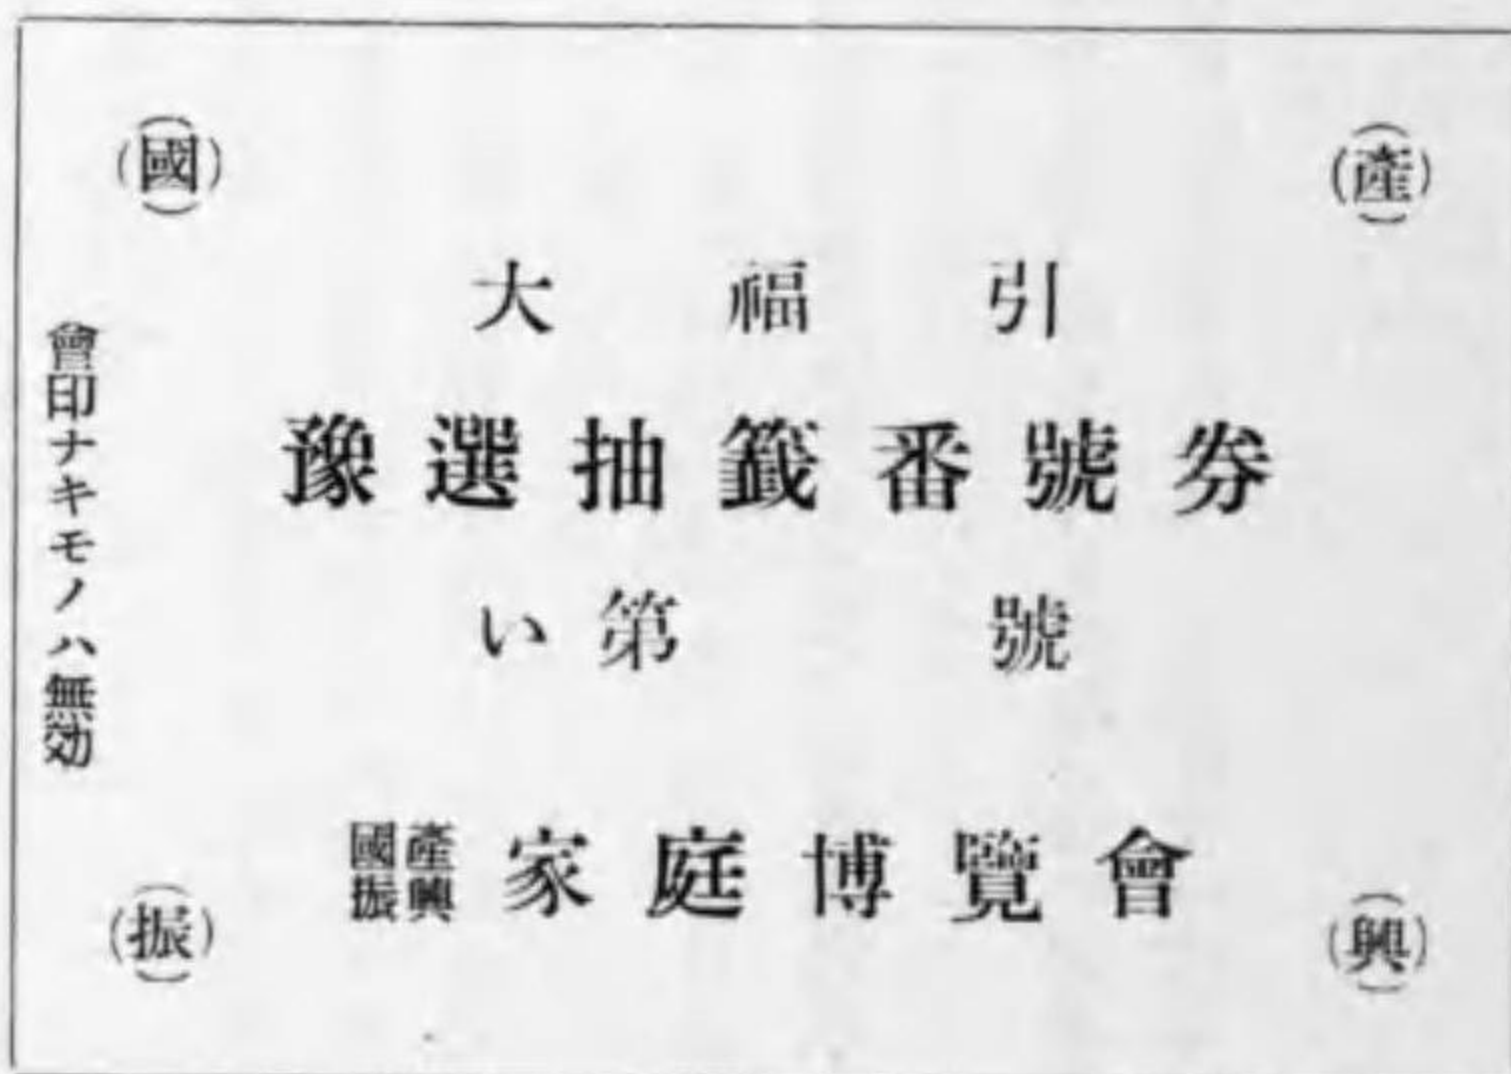 (國) (產)
大福引
豫選抽籤番號券
い第 號
國產振興 家庭博覽會
(振) (興)
會印ナキモノハ無効